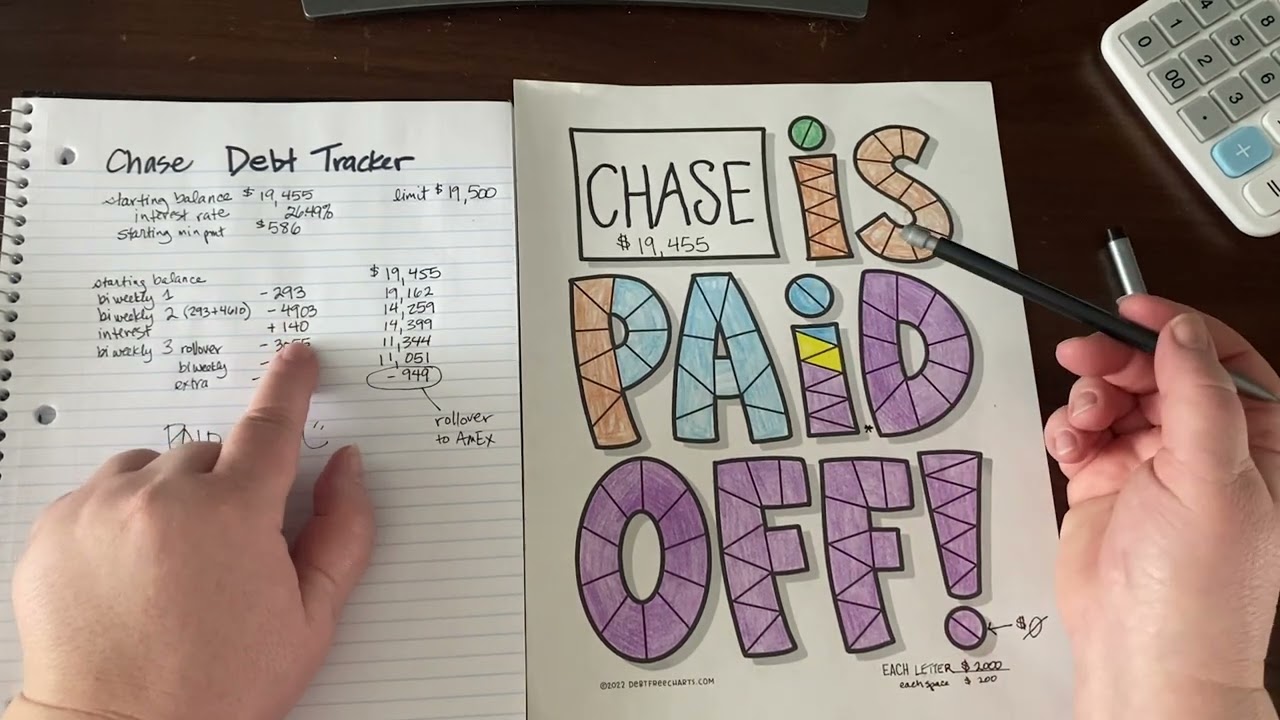 Chase Debt Tracker
starting balance $19,455 limit $19,500
interest rate 26.49%
starting min pmt $586
starting balance $19,455
biweekly 1 - 293 19,162
biweekly 2 (293+4610) - 4903 14,259
interest + 140 14,399
biweekly 3 rollover - 11,344
biweekly - 11,051
extra - - 949
rollover
to AmEx
CHASE
$19,455
iS
PAiD
OFF!
$0
EACH LETTER $2000
each space $200
©2022 DEBTFREECHARTS.COM
4
1
8
0
5
2
6
00
3
.
+
=